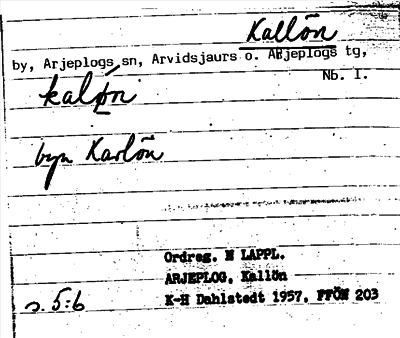 Kallön
by, Arjeplogs sn, Arvidsjaurs o. Arjeplogs tg,
Nb. I.
byn Karlön
Ordreg. N LAPPL.
ARJEPLOG, Kallön
s. 5:6
K-H Dahlstedt 1957, FFÖN 203